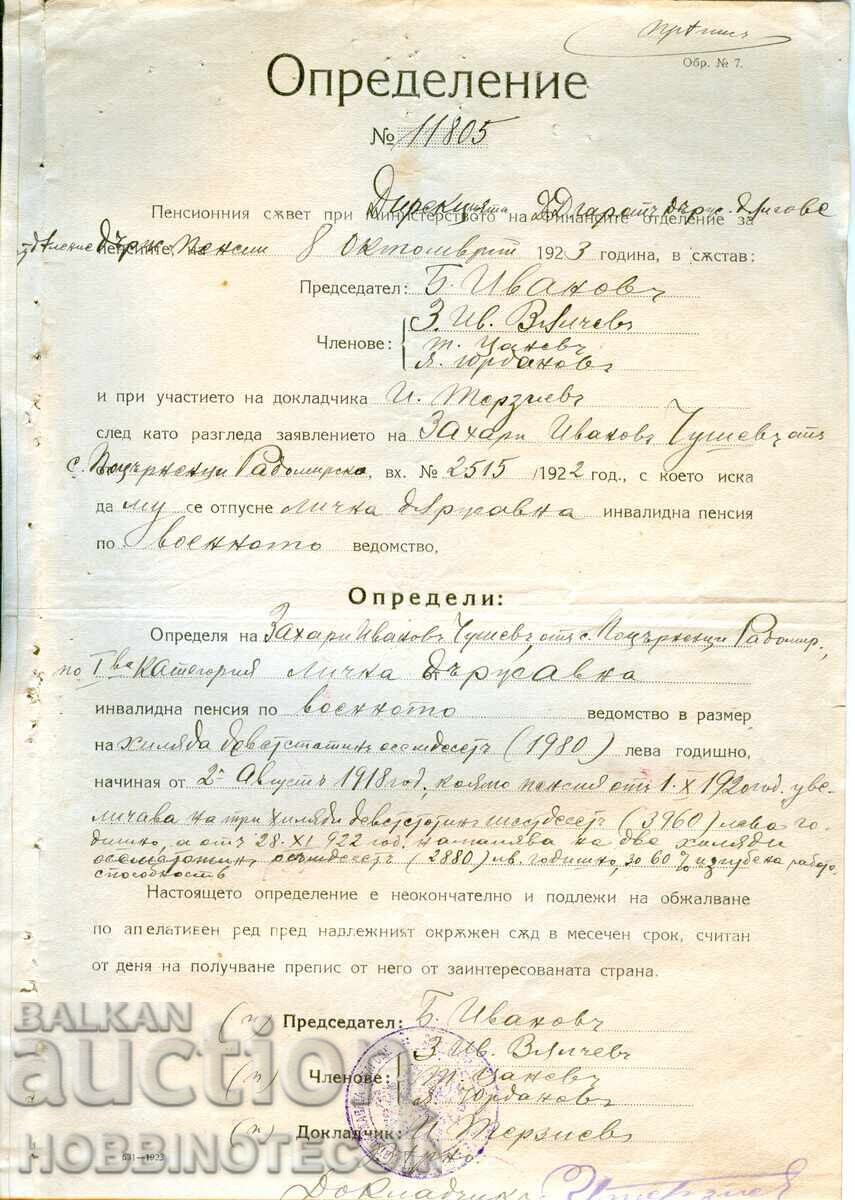 Прѣписъ
Обр. № 7.
Определение
№ 11805
Пенсионния сѫвет при Дирекцията Министерството на Финансите отделение за държ. дългове
отдѣление Държ. пенсии пенсиите, на 8 Октомврий 1923 година, в сѫстав:
Председател: Б. Ивановъ
З. Ив. Вълчевъ
Членове: Т. Цаневъ
Я. Юрдановъ
и при участието на докладчика И. Терзиевъ
след като разгледа заявлението на Захари Ивановъ Чушевъ отъ
с. Поцърненци Радомирско, вх. № 2515 / 1922 год., с което иска
да му се отпусне лична държавна инвалидна пенсия
по военното ведомство,
Определи:
Определя на Захари Ивановъ Чушевъ, отъ с. Поцърненци Радомир.,
по I ва категория лична държавна
инвалидна пенсия по военното ведомство в размер
на хиляда деветстотинъ осемдесетъ (1980) лева годишно,
начиная от 2й Августъ 1918 год., която пенсия отъ 1. X 1920 год. уве-
личава на три хиляди деветстотинъ шестдесетъ (3960) лева го-
дишно, а отъ 28. XI 922 год. намалява на две хиляди
осемстотинъ осемдесетъ (2880) лв. годишно, за 60% изгубена работо-
способность
Настоящето определение е неокончателно и подлежи на обжалване
по апелативен ред пред надлежният окрѫжен сѫд в месечен срок, считан
от деня на получване препис от него от заинтересованата страна.
(п) Председател: Б. Ивановъ
З. Ив. Вълчевъ
(п) Членове: Т. Цаневъ
Я. Юрдановъ
(п) Докладчик: И. Терзиевъ
631—1923
Вѣрно:
Докладчикъ:
BALKAN
auction
HOBBINOTECA